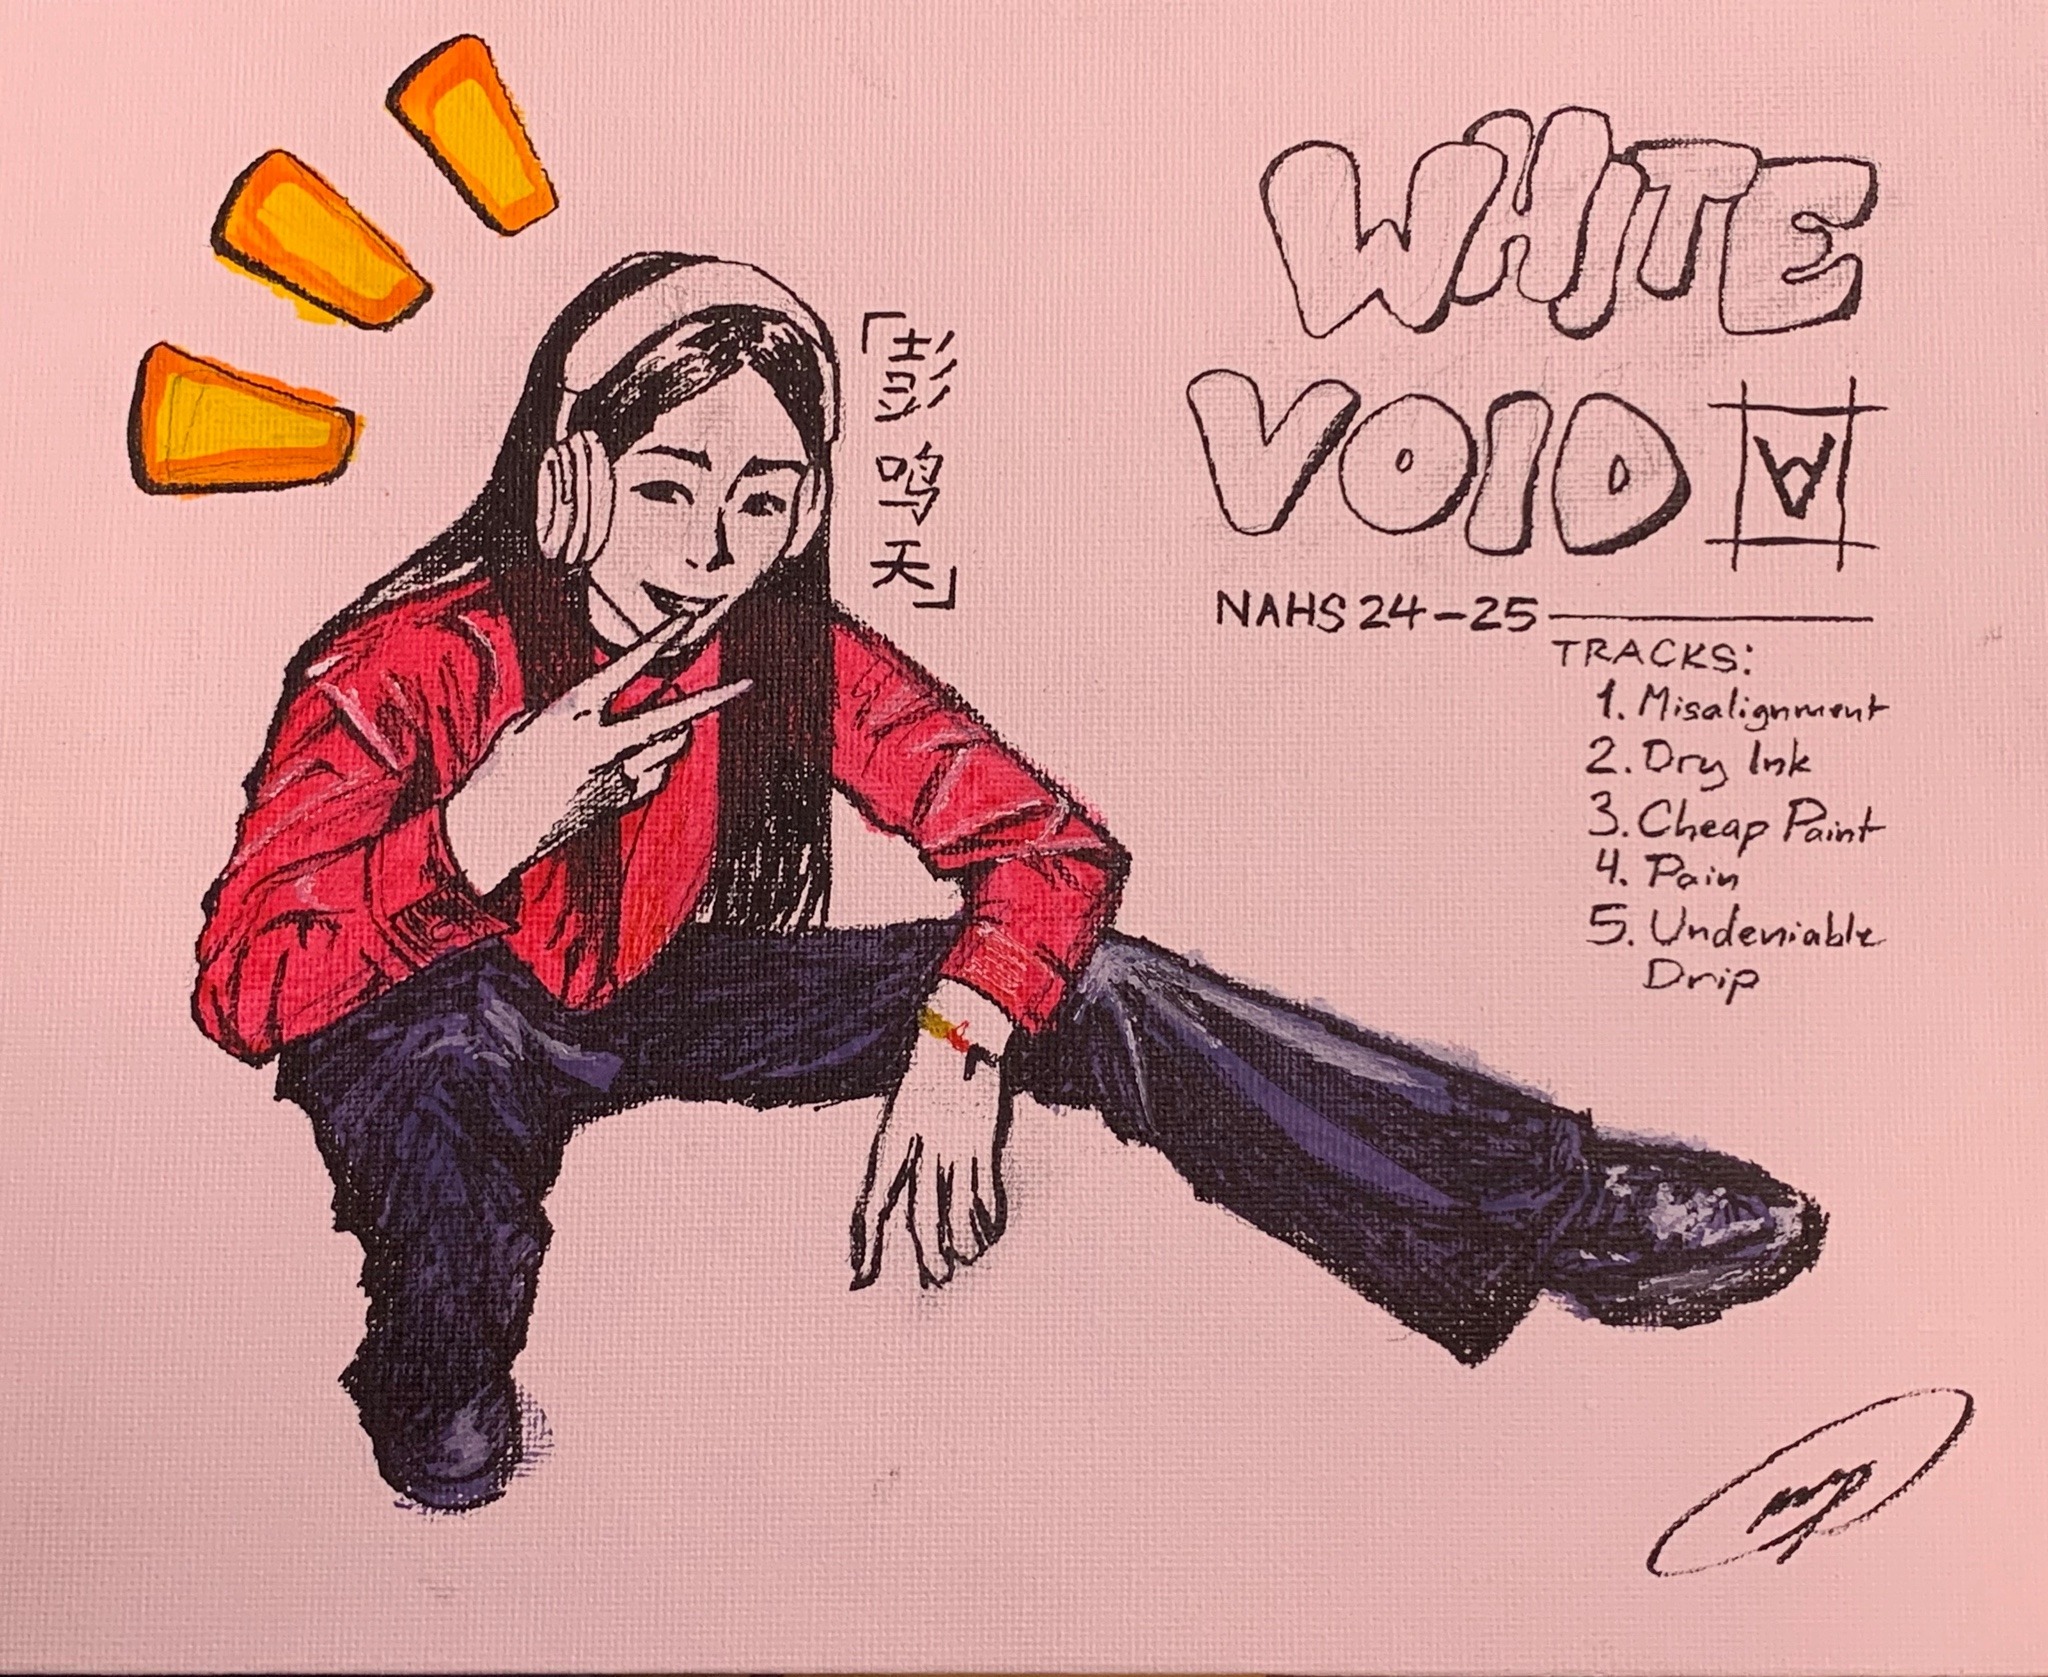 「彭鸣天」
WHITE
VOID W
NAHS 24-25
TRACKS:
1. Misalignment
2. Dry Ink
3. Cheap Paint
4. Pain
5. Undeniable
Drip